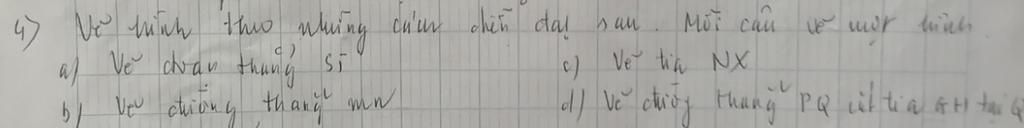 4) Vẽ hình theo những cách diễn đạt sau. Mỗi câu vẽ một hình
a) Vẽ đoạn thẳng SI c) Vẽ tia NX
b) Vẽ đường thẳng mn d) Vẽ đường thẳng PQ cắt tia GH tại G